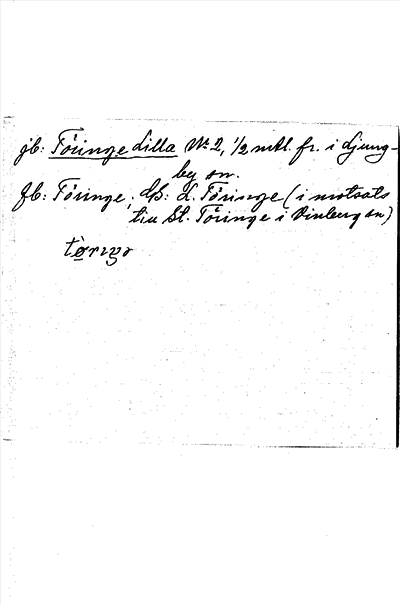 jb: Töringe Lilla № 2, 1/2 mtl. fr. i Ljung-
by sn.
fb: Töringe; L. Töringe (i motsats
till St. Töringe i Vinberg sn)